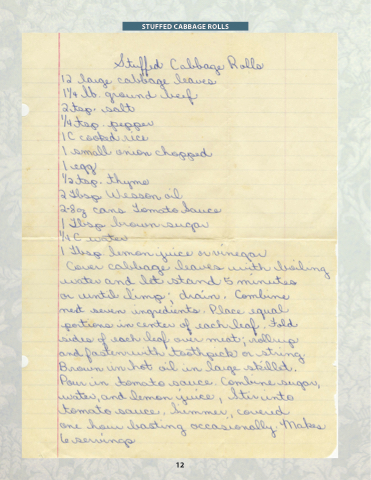 STUFFED CABBAGE ROLLS
Stuffed Cabbage Rolls
12 large cabbage leaves
1 1/4 lb. ground beef
2 tsp. salt
1/4 tsp. pepper
1 C cooked rice
1 small onion chopped
1 egg
1/2 tsp. thyme
2 Tbsp Wesson oil
2-8oz cans Tomato Sauce
1 Tbsp brown sugar
1/4 C water
1 Tbsp lemon juice or vinegar
Cover cabbage leaves with boiling
water and let stand 5 minutes
or until limp; drain. Combine
next seven ingredients. Place equal
portions in center of each leaf. Fold
sides of each leaf over meat; roll up
and fasten with toothpick or string.
Brown in hot oil in large skillet.
Pour in tomato sauce. Combine sugar,
water, and lemon juice; Stir into
tomato sauce. Simmer, covered
one hour basting occasionally. Makes
6 servings
12